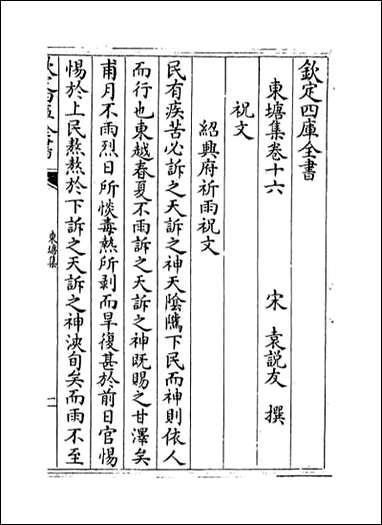 欽定四庫全書
東塘集卷十六
宋 袁説友 撰
祝文
紹興府祈雨祝文
民有疾苦必訴之天訴之神天陰隲下民而神則依人
而行也東越春夏不雨訴之天訴之神既賜之甘澤矣
甫月不雨烈日所惔毒熱所剥而旱復甚於前日官惕
惕於上民熬熬於下訴之天訴之神浹旬矣而雨不至
東塘集